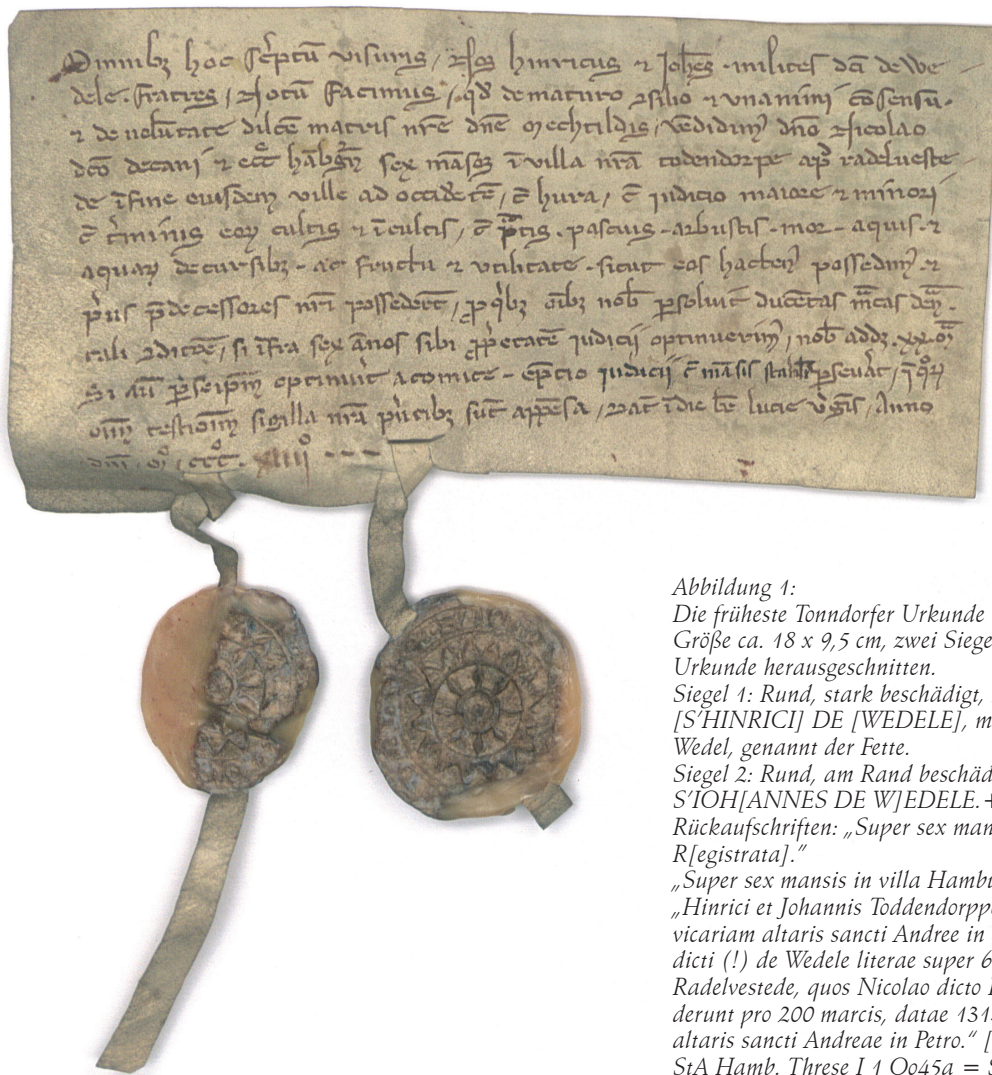 Omnibꝫ hoc sc'ptū visuris, Nos hinricus ⁊ Joh̄es milites dc̄i de We
dele. fratres, Notū facimus, qd̄ de maturo ꝯsilio ⁊ vnanimi cōsensu.
⁊ de volūtate dilc̄e matris nr̄e dn̄e Mechtildis, vēdidimꝰ dn̄o Nicolao
dc̄o decani ⁊ ecc̄ hābgn̄ sex māsos ī villa nr̄a todendorpe apd̄ radelueste
de ī fine eiusdem ville ad occidētē, c̄ hura, c̄ iudicio maiore ⁊ minori
c̄ t'minis eoꝝ cultis ⁊ īcultis, c̄ p̄tis. pascuis - arbustis - mor - aquis - ⁊
aquaꝝ decursibꝫ - ac fructu ⁊ vtilitate - sicut eos hactenꝰ possedimꝰ ⁊
p'us p̄decessores nr̄i possederūt, ꝓ q'bꝫ oībꝫ nob̄ ꝑsoluit ducētas m̄cas den̄.
tali ꝯdictōe, si īfra sex ānos sibi ꝓp'etatē iudicij optinuerimꝰ, nob̄ addꝫ. xx. m̄
Si aū ꝑ seipm̄ optinu'it a comite - ēptio iudicij c̄ māsis ꝑseu'at, ī qͦꝝ
oīm sigilla nr̄a p'ntibꝫ sūt appēsa, Dat̄ ī die bē lucie v'gīs, Anno
dn̄i. Mͦ. cccͦ. xiiiiͦ
Abbildung 1:
Die früheste Tonndorfer Urkunde
Größe ca. 18 x 9,5 cm, zwei Siege
Urkunde herausgeschnitten.
Siegel 1: Rund, stark beschädigt,
[S'HINRICI] DE [WEDELE], m
Wedel, genannt der Fette.
Siegel 2: Rund, am Rand beschäd
S'IOH[ANNES DE W]EDELE.+
Rückaufschriften: „Super sex man
R[egistrata].“
„Super sex mansis in villa Hambu
„Hinrici et Johannis Toddendorpp
vicariam altaris sancti Andree in
dicti (!) de Wedele literae super 6
Radelvestede, quos Nicolao dicto
derunt pro 200 marcis, datae 131
altaris sancti Andreae in Petro.“ [
StA Hamb. Threse I 1 Oo45a = S